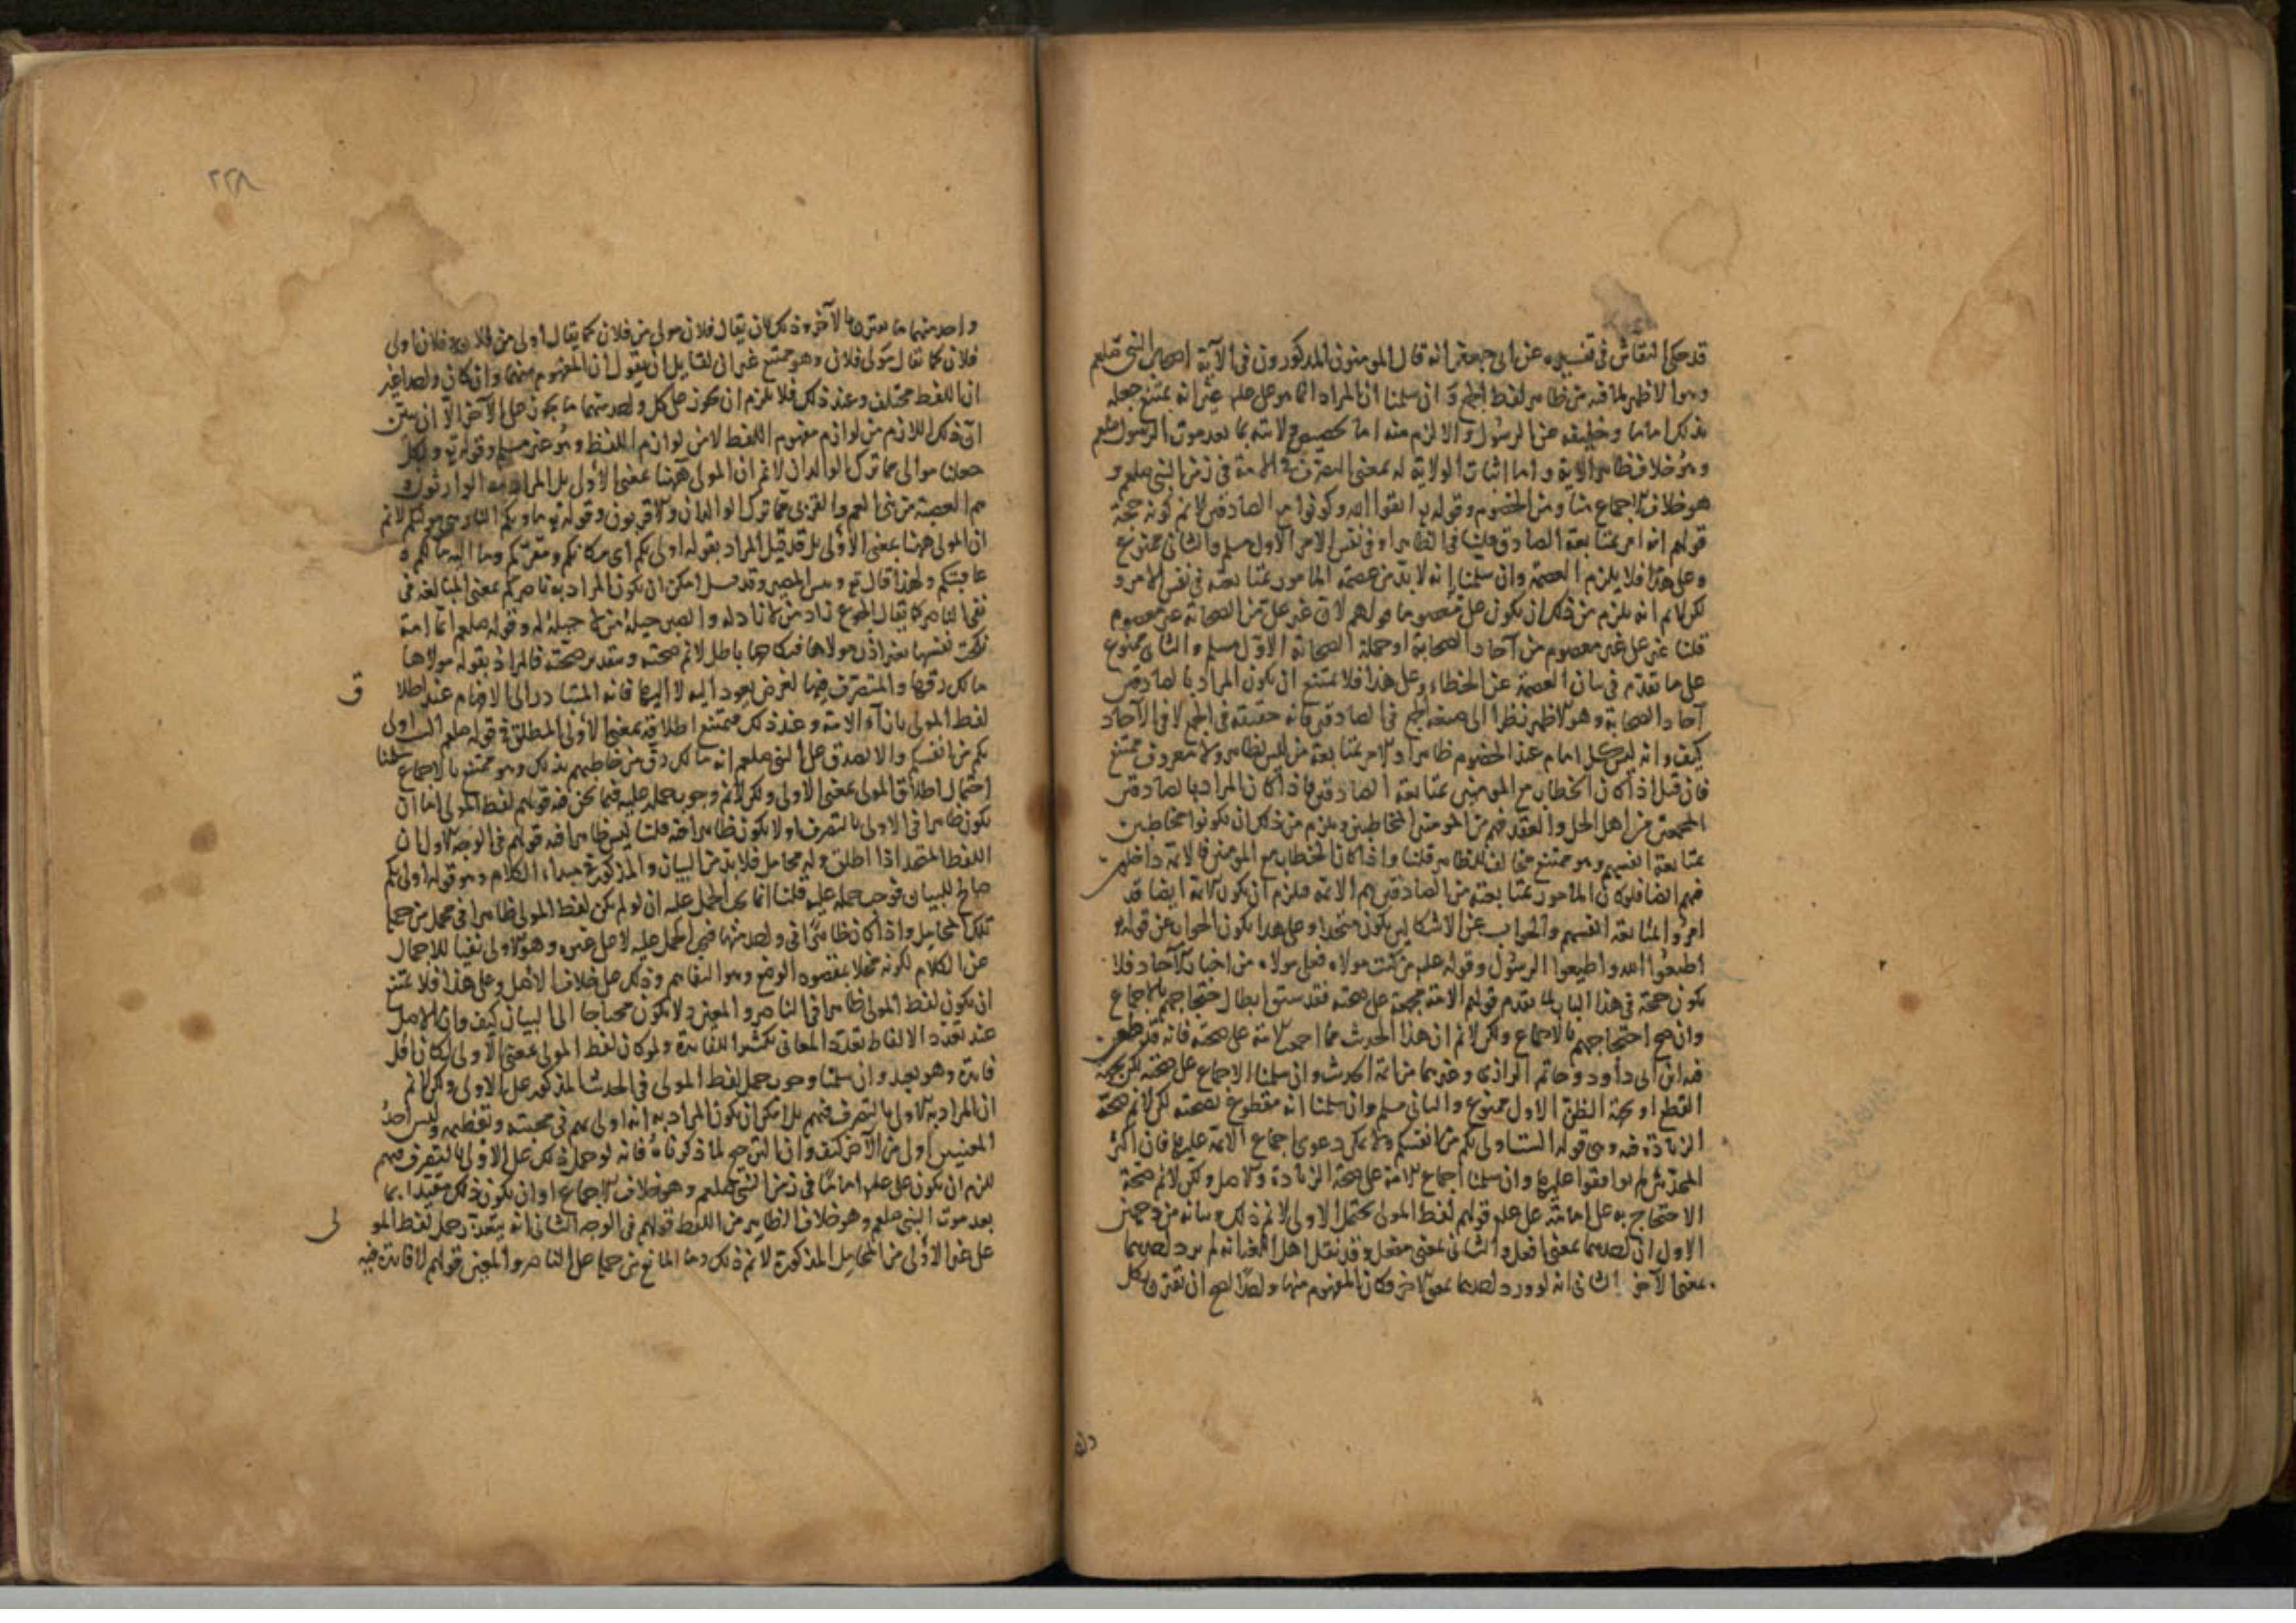 قد حكى النقاش فى تفسيره عن ابى جعفر انه قال المومنون المذكورون فى الآية اصحاب النبى صلعم
وهو الاظهر لما فيه من ظاهر لفظ الجمع وان سلمنا ان المراد انما هو على علم غير انه يمتنع جعله
بذلك اماما وخليفة عن الرسول والا لزم منه اما تخصيص ولايته بما بعد موت الرسول صلعم
وهو خلاف ظاهر الاية واما اثبات الولاية له بمعنى التصرف فى الامة فى زمن النبى صلعم و
هو خلاف الاجماع منا ومن الخصوم وقوله تع اتقوا الله وكونوا مع الصادقين لا نم كونه حجة
قولهم انه امر بمتابعة الصادق قلنا فى الظاهر او فى نفس الامر الاول مسلم والثانى ممنوع
وعلى هذا فلا يلزم العصمة وان سلمنا انه لا بد من عصمة المامور بمتابعته فى نفس الامر و
لكن لا نم انه يلزم من ذلك ان يكون على معصوما قولهم لان غير على من الصحابة غير معصوم
قلنا غير على غير معصوم من آحاد الصحابة او جملة الصحابة الاول مسلم والثانى ممنوع
على ما تقدم فى بيان العصمة عن الخطاء وعلى هذا فلا يمتنع ان يكون المراد بالصادقين
آحاد الصحابة وهو الاظهر نظرا الى صيغة الجمع فى الصادقين فانه حقيقة فى الجمع لا فى الآحاد
كيف وانه ليس كل امام عند الخصوم ظاهرا والامر بمتابعة من ليس بظاهر ولا معروف ممتنع
فان قيل اذا كان الخطاب مع المومنين بمتابعة الصادقين فاذا كان المراد بالصادقين
المجمعين من اهل الحل والعقد فهم من المومنين المخاطبين ويلزم من ذلك ان يكونوا مخاطبين
بمتابعة انفسهم وهو ممتنع مخالف للظاهر قلنا واذا كان الخطاب مع المومنين فالائمة داخلون
فيهم ايضا فلو كان المامور بمتابعته من الصادقين هم الائمة فلزم ان يكون الائمة ايضا قد
امروا بمتابعة انفسهم والجواب عن الاشكالين يكون متحدا وعلى هذا يكون الجواب عن قوله
اطيعوا الله واطيعوا الرسول وقوله علم من كنت مولاه فعلى مولاه من اخبار الآحاد فلا
يكون حجة فى هذا الباب لما تقدم قولهم الامة مجمعة على صحته فقد سبق ابطال احتجاجهم بالاجماع
وان صح احتجاجهم بالاجماع ولكن لا نم ان هذا الحديث مما اجمع الامة على صحته فانه قد طعن
فيه ابن ابى داود وحاتم الرازى وغيرهما من ائمة الحديث وان سلمنا الاجماع على صحته لكن بجهة
القطع او بجهة الظن الاول ممنوع والثانى مسلم وان سلمنا انه مقطوع بصحته لكن لا نم صحة
الزيادة فيه وهى قوله الست اولى بكم من انفسكم ولا يمكن دعوى اجماع الامة عليها فان اكثر
المحدثين لم يوافقوا عليها وان سلمنا اجماع الامة على صحة الزيادة والاصل ولكن لا نم صحة
الاحتجاج به على امامة على علم قولهم لفظ المولى يحتمل الاولى لا نم ذلك وبيانه من وجهين
الاول ان احدهما بمعنى افعل والثانى بمعنى مفعل وقد نقل اهل اللغة انه لم يرد احدهما
بمعنى الآخر الثانى انه لو ورد احدهما بمعنى الاخر وكان المفهوم منهما واحدا لصح ان يقترن بكل
واحد منهما ما يقترن بالآخر وذلك كان يقال فلان مولى من فلان كما يقال اولى من فلان وفلان اولى
فلان كما يقال مولى فلان وهو ممتنع غير ان لقايل ان يقول ان المفهوم منهما وان كان واحدا غير
ان اللفظ مختلف وعند ذلك فلا يلزم ان يكون على كل واحد منهما ما يكون على الآخر الا ان يبين
ان ذلك اللازم من لوازم مفهوم اللفظ لا من لوازم اللفظ وهو غير مسلم وقوله تع ولكل
جعلنا موالى مما ترك الوالدان لا نم ان المولى ههنا بمعنى الاولى بل المراد به الوارثون و
هم العصبة من بنى العم والقربى مما ترك الوالدان والاقربون وقوله تع ماويكم النار هى موليكم لا نم
ان المولى ههنا بمعنى الاولى بل قد قيل المراد بقوله اولى بكم اى مكانكم ومقركم وما اليه مآلكم و
عاقبتكم ولهذا قال تع وبئس المصير وقد قيل امكن ان يكون المراد به ناصركم بمعنى المبالغة فى
نفى الناصر كما يقال الجوع زاد من لا زاد له والصبر حيلة من لا حيلة له وقوله صلعم ايما امة
نكحت نفسها بغير اذن مولاها فنكاحها باطل لا نم صحته وبتقدير صحته فالمراد بقوله مولاها
مالك رقها والمتصرف فيها لغرض يعود اليه لا اليها فانه المتبادر الى الافهام عند اطلا
ق
لفظ المولى بازآء الامة وعند ذلك فيمتنع اطلاقه بمعنى الاولى المطلق فى قوله صلعم الست اولى
بكم من انفسكم والا لصدق على النبى صلعم انه مالك رق من خاطبهم بذلك وهو ممتنع بالاجماع سلمنا
احتمال اطلاق المولى بمعنى الاولى ولكن لا نم وجوب حمله عليه فيما نحن فيه قولهم لفظ المولى اما ان
يكون ظاهرا فى الاولى بالتصرف او لا يكون ظاهرا فيه قلنا ليس ظاهرا فيه قولهم فى الوجه الاول ان
اللفظ المتحد اذا اطلق وله محامل فلا بد من البيان والمذكور فى مبداء الكلام وهو قوله اولى بكم
صالح للبيان فوجب حمله عليه قلنا انما يجب الحمل عليه ان لو لم يكن لفظ المولى ظاهرا فى محمل من جملة
تلك المحامل واذا كان ظاهرا فى واحد منها فيجب الحمل عليه لا على غيره وهو الاولى نفيا للاجمال
عن الكلام لكونه مخلا بمقصود الوضع وهو التفاهم وذلك على خلاف الاصل وعلى هذا فلا يمتنع
ان يكون لفظ المولى ظاهرا فى الناصر والمعين ولا يكون محتاجا الى البيان كيف وان الاصل
عند تعدد الالفاظ تعدد المعانى تكثيرا للفائدة ولو كان لفظ المولى بمعنى الاولى لكان اقل
فائدة وهو بعيد وان سلمنا وجوب حمل لفظ المولى فى الحديث المذكور على الاولى ولكن لا نم
ان المراد به الاولى بالتصرف فيهم بل امكن ان يكون المراد به انه اولى بهم فى محبته وتعظيمه وليس احد
المعنيين اولى من الآخر كيف وان الترجيح لما ذكرناه فانه لو حمل ذلك على الاولى بالتصرف فيهم
للزم ان يكون على علم اماما فى زمن النبى صلعم وهو خلاف الاجماع او ان يكون ذلك مقيدا بما
بعد موت النبى صلعم وهو خلاف الظاهر من اللفظ قولهم فى الوجه الثانى انه يتعذر حمل لفظ المو
لى
على غير الاولى من المحامل المذكورة لا نم ذلك وما المانع من حمله على الناصر والمعين قولهم لا فائدة فيه